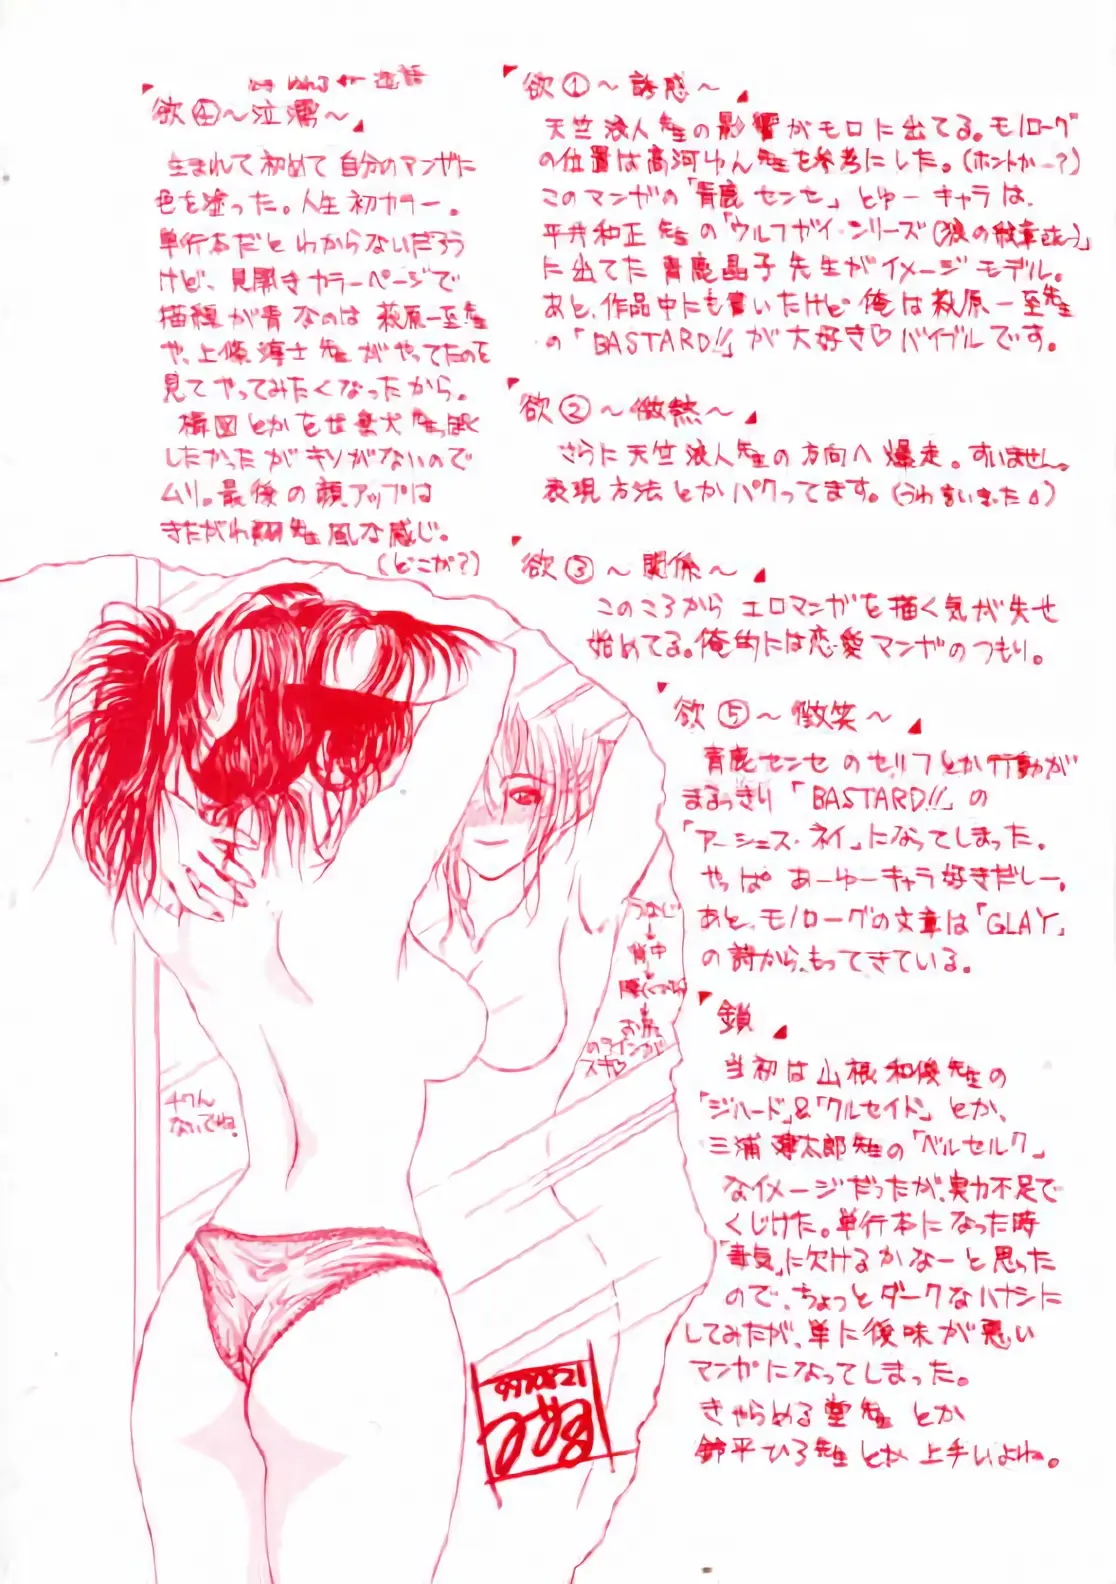 欲①～誘惑～
天竺浪人先生の影響がモロに出てる。モノローグ
の位置は高河ゆん先生を参考にした。(ホントか—?)
このマンガの「青鹿センセ」とゆーキャラは、
平井和正先生の「ウルフガイ・シリーズ(狼の紋章とか)」
に出てた青鹿晶子先生がイメージモデル。
あと、作品中にも書いたけど俺は萩原一至先生
の「BASTARD!!」が大好き♡バイブルです。
欲②～微熱～
さらに天竺浪人先生の方向へ爆走。すいません。
表現方法とかパクってます。
欲③～関係～
このころからエロマンガを描く気が失せ
始めてる。俺的には恋愛マンガのつもり。
欲④～泣濡～
生まれて初めて自分のマンガに
色を塗った。人生初カラー。
単行本だとわからないだろう
けど、見開きカラーページで
描線が青なのは萩原一至先生
や、上條淳士先生がやってたのを
見てやってみたくなったから。
構図とかを世棄犬先生っぽく
したかったがキソがないので
ムリ。最後の顔アップは
きたがわ翔先生風な感じ。
(どこが?)
欲⑤～微笑～
青鹿センセのセリフとか行動が
まるっきり「BASTARD!!」の
「アーシェス・ネイ」になってしまった。
やっぱあーゆーキャラ好きだしー。
あと、モノローグの文章は「GLAY」
の詩から、もってきている。
鎖
当初は山根和俊先生の
「ジハード」&「クルセイド」とか、
三浦建太郎先生の「ベルセルク」
なイメージだったが、実力不足で
くじけた。単行本になった時
「毒気」に欠けるかなーと思った
ので、ちょっとダークなハナシに
してみたが、単に後味が悪い
マンガになってしまった。
きゃらめる堂先生とか
鈴平ひろ先生とか上手いよね。
うなじ
↓
背中
↓
腰(くびれ)
↓
お尻
のラインが
スキ♡
チクん
ないでね。
970821